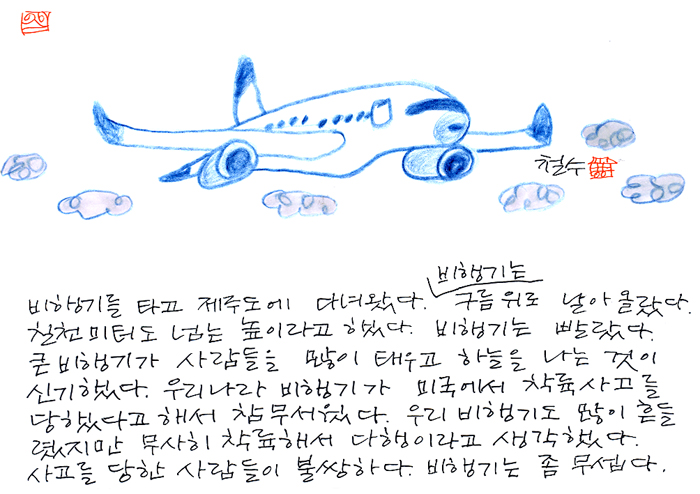 철수
비행기를 타고 제주도에 다녀왔다. 비행기는 구름위로 날아올랐다.
칠천미터도 넘는 높이라고 했다. 비행기는 빨랐다.
큰비행기가 사람들을 많이 태우고 하늘을 나는 것이
신기했다. 우리나라 비행기가 미국에서 착륙사고를
당했다고 해서 참무서웠다. 우리 비행기도 많이 흔들
렸지만 무사히 착륙해서 다행이라고 생각했다.
사고를 당한 사람들이 불쌍하다. 비행기는 좀 무섭다.